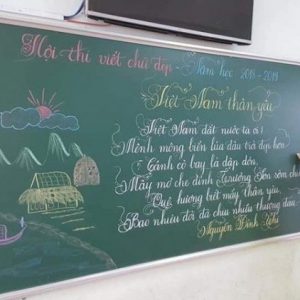 Hội thi viết chữ đẹp - Năm học 2018-2019
Việt Nam thân yêu
Việt Nam đất nước ta ơi!
Mênh mông biển lúa đâu trời đẹp hơn
Cánh cò bay lả dập dờn,
Mây mờ che đỉnh Trường Sơn sớm chiều
Quê hương biết mấy thân yêu,
Bao nhiêu đời đã chịu nhiều thương đau
Nguyễn Đình Thi